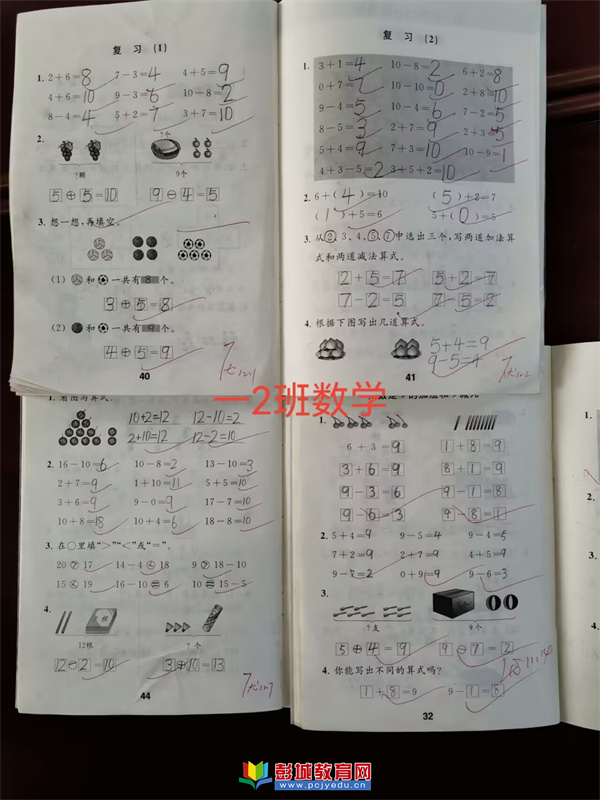 复 习 (1)
1. 2+6=8 7-3=4 4+5=9
4+6=10 9-3=6 10-8=2
8-4=4 5+2=7 3+7=10
2.
?个
?颗 9个
5+5=10 9-4=5
3. 想一想,再填空。
(1) 和 一共有8个。
3+5=8
(2) 和 一共有9个。
4+5=9
40
复 习 (2)
1. 3+1=4 10-8=2 6+2=8
0+7=7 10-10=0 8+2=10
9-4=5 10-4=6 7-2=5
8-5=3 2+7=9 2+3=5
5+4=9 7+3=10 10-9=1
4+3-5=2 3+5+2=10
2. 6+(4)=10 (5)+2=7
(1)+5=6 5+(0)=5
3. 从②、3、4、⑤、⑦中选出三个,写两道加法算
式和两道减法算式。
2+5=7 5+2=7
7-2=5 7-5=2
4. 根据下图写出几道算式。
5+4=9
9-5=4
41
一2班数学
1. 看图写算式。
10+2=12 12-10=2
2+10=12 12-2=10
2. 16-10=6 10-8=2 13-10=3
2+7=9 1+10=11 5+5=10
3+6=9 9-0=9 17-7=10
10+8=18 10+4=6 18-8=10
3. 在○里填“>”“<”或“=”。
20>17 14-4<18 9>18-10
15<19 16-10=6 10=15-5
4.
12根 ?个
12-2=10 3+10=13
44
1.
6+3=9 1+8=9
3+6=9 8+1=9
9-3=6 9-1=8
9-6=3 9-8=1
2. 5+4=9 9-5=4 9-4=5
7+2=9 2+7=9 4+5=9
9-7=2 0+9=9 9-6=3
3.
?支 9个
5+4=9 9-7=2
4. 你能写出不同的算式吗?
1+8=9 9-1=8
32
彭城教育网
www.pcjyedu.cn